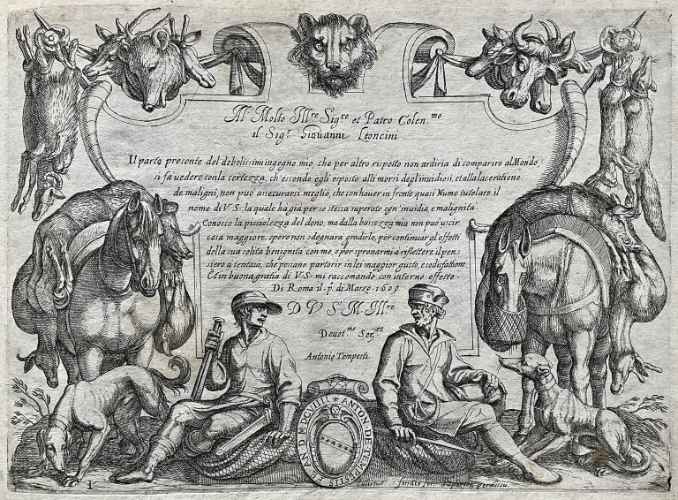 Al Molto Ill.re Sig.re et Patro Colen.mo
il Sig.r Giovanni Leoncini
Il parto presente del debolissimi ingegno mio, che per altro rispetto non ardiria di comparire al Mondo,
si fa vedere con la certezza, ch'essendo egli esposto alli morsi degl'invidiosi, et alla centione
de maligni, non può assicurarsi meglio, che con haver in fronte quasi Nume tutelare il
nome di V.S: la quale ha già per se stessa superato ogn'invidia, e malignità
Conosco la picciolezza del dono, ma dalla bassezza mia non può uscir
cosa maggiore, però non sdegnarà goderle, per continuar gl'effetti
della sua solita benignità con me, e per spronarmi à rifflettere il pen,
siero à sentava, che possano partorir in lei maggior gusto, e sodisfattione
E in buona gratia di V.S. mi raccomando con interno affecto.
Di Roma il p.o di Marzo 1609
D V S M. Ill.re
Devot.mo Ser.re
Antonio Tempesti.
ANTON DE TEMPESTIS
I